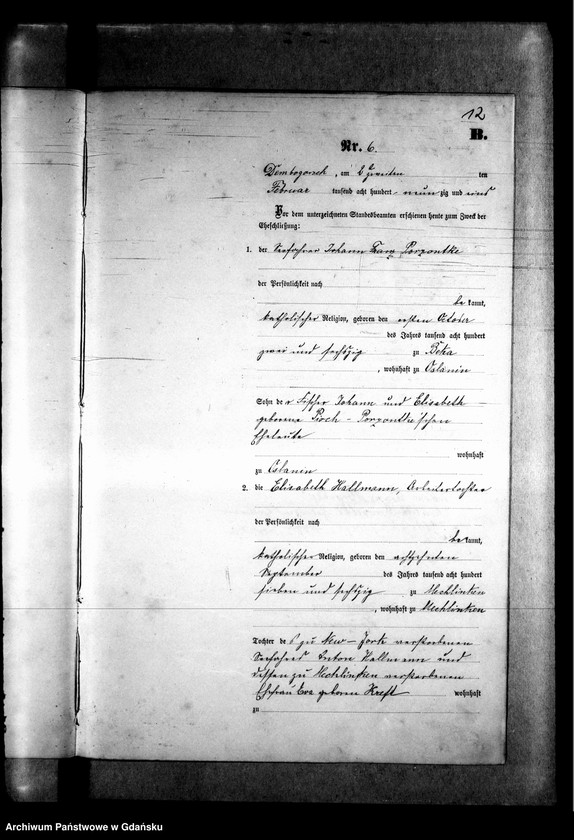 12
B.
Nr. 6.
Dembogorsch, am 2 zweiten ten
Februar tausend acht hundert neun zig und eins
Vor dem unterzeichneten Standesbeamten erschienen heute zum Zweck der
Eheschließung:
1. der Seefahrer Johann Porzontke
der Persönlichkeit nach
be kannt,
katholischer Religion, geboren den ersten October
des Jahres tausend acht hundert
zwei und sechszig zu Beka
, wohnhaft zu Oslanin
Sohn der Fischer Johann und Elisabeth
geborene Pioch - Porzontke'schen
Eheleute
wohnhaft
zu Oslanin
2. die Elisabeth Hallmann, Arbeitertochter
der Persönlichkeit nach
be kannt,
katholischer Religion, geboren den achtzehnten
September des Jahres tausend acht hundert
sieben und sechszig zu Mechlinken
, wohnhaft zu Mechlinken
Tochter des zu New-York verstorbenen
Anton Hallmann und
dessen zu Mechlinken verstorbenen
Ehefrau Eva geboren Kreft wohnhaft
zu
Archiwum Państwowe w Gdańsku